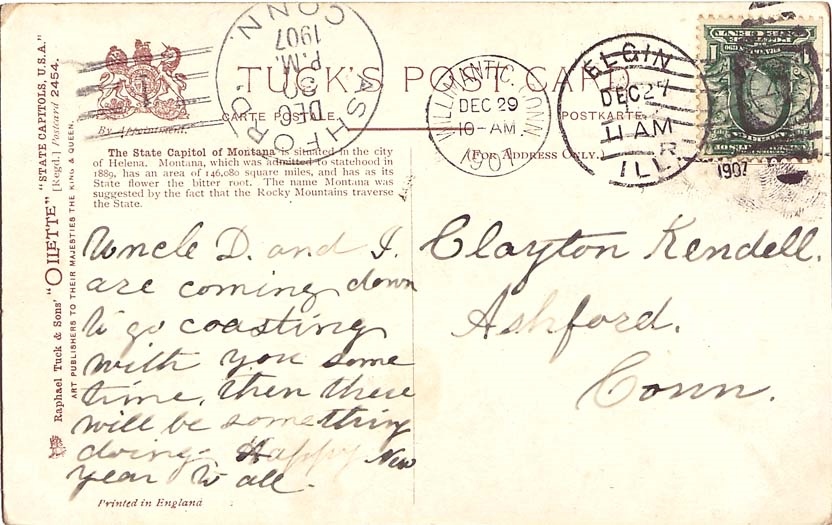 ASHFORD. CONN.
DEC 30
P.M.
1907
TUCK'S POST CARD
CARTE POSTALE.
POSTKARTE.
By Appointment.
(For Address Only.)
WILLIMANTIC, CONN.
DEC 29
10-AM
1907
ELGIN
DEC 27
11 AM
ILL.
1907
The State Capitol of Montana is situated in the city
of Helena. Montana, which was admitted to statehood in
1889, has an area of 146,080 square miles, and has as its
State flower the bitter root. The name Montana was
suggested by the fact that the Rocky Mountains traverse
the State.
Uncle D. and I.
are coming down
to go coasting
with you some
time, then there
will be something
doing. Happy New
year to all.
Clayton Kendell.
Ashford.
Conn.
Printed in England
Raphael Tuck & Sons' "OILETTE" "STATE CAPITOLS, U.S.A."
[Regd.] Postcard 2454.
ART PUBLISHERS TO THEIR MAJESTIES THE KING & QUEEN.